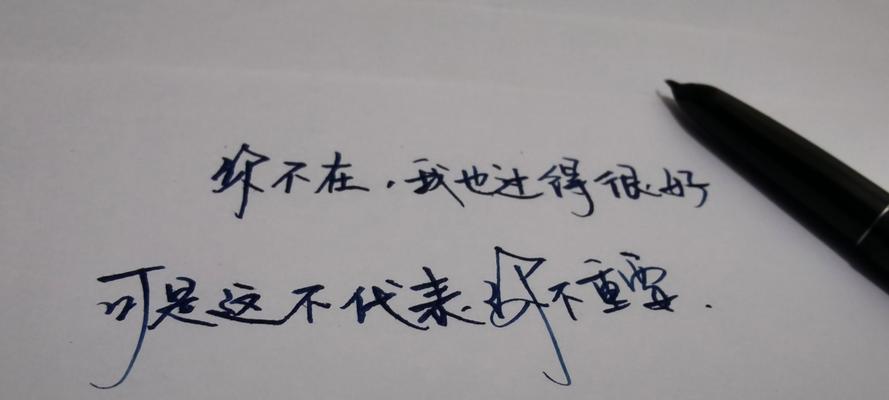 你不在，我也过得很好
可是这不代表你不重要.